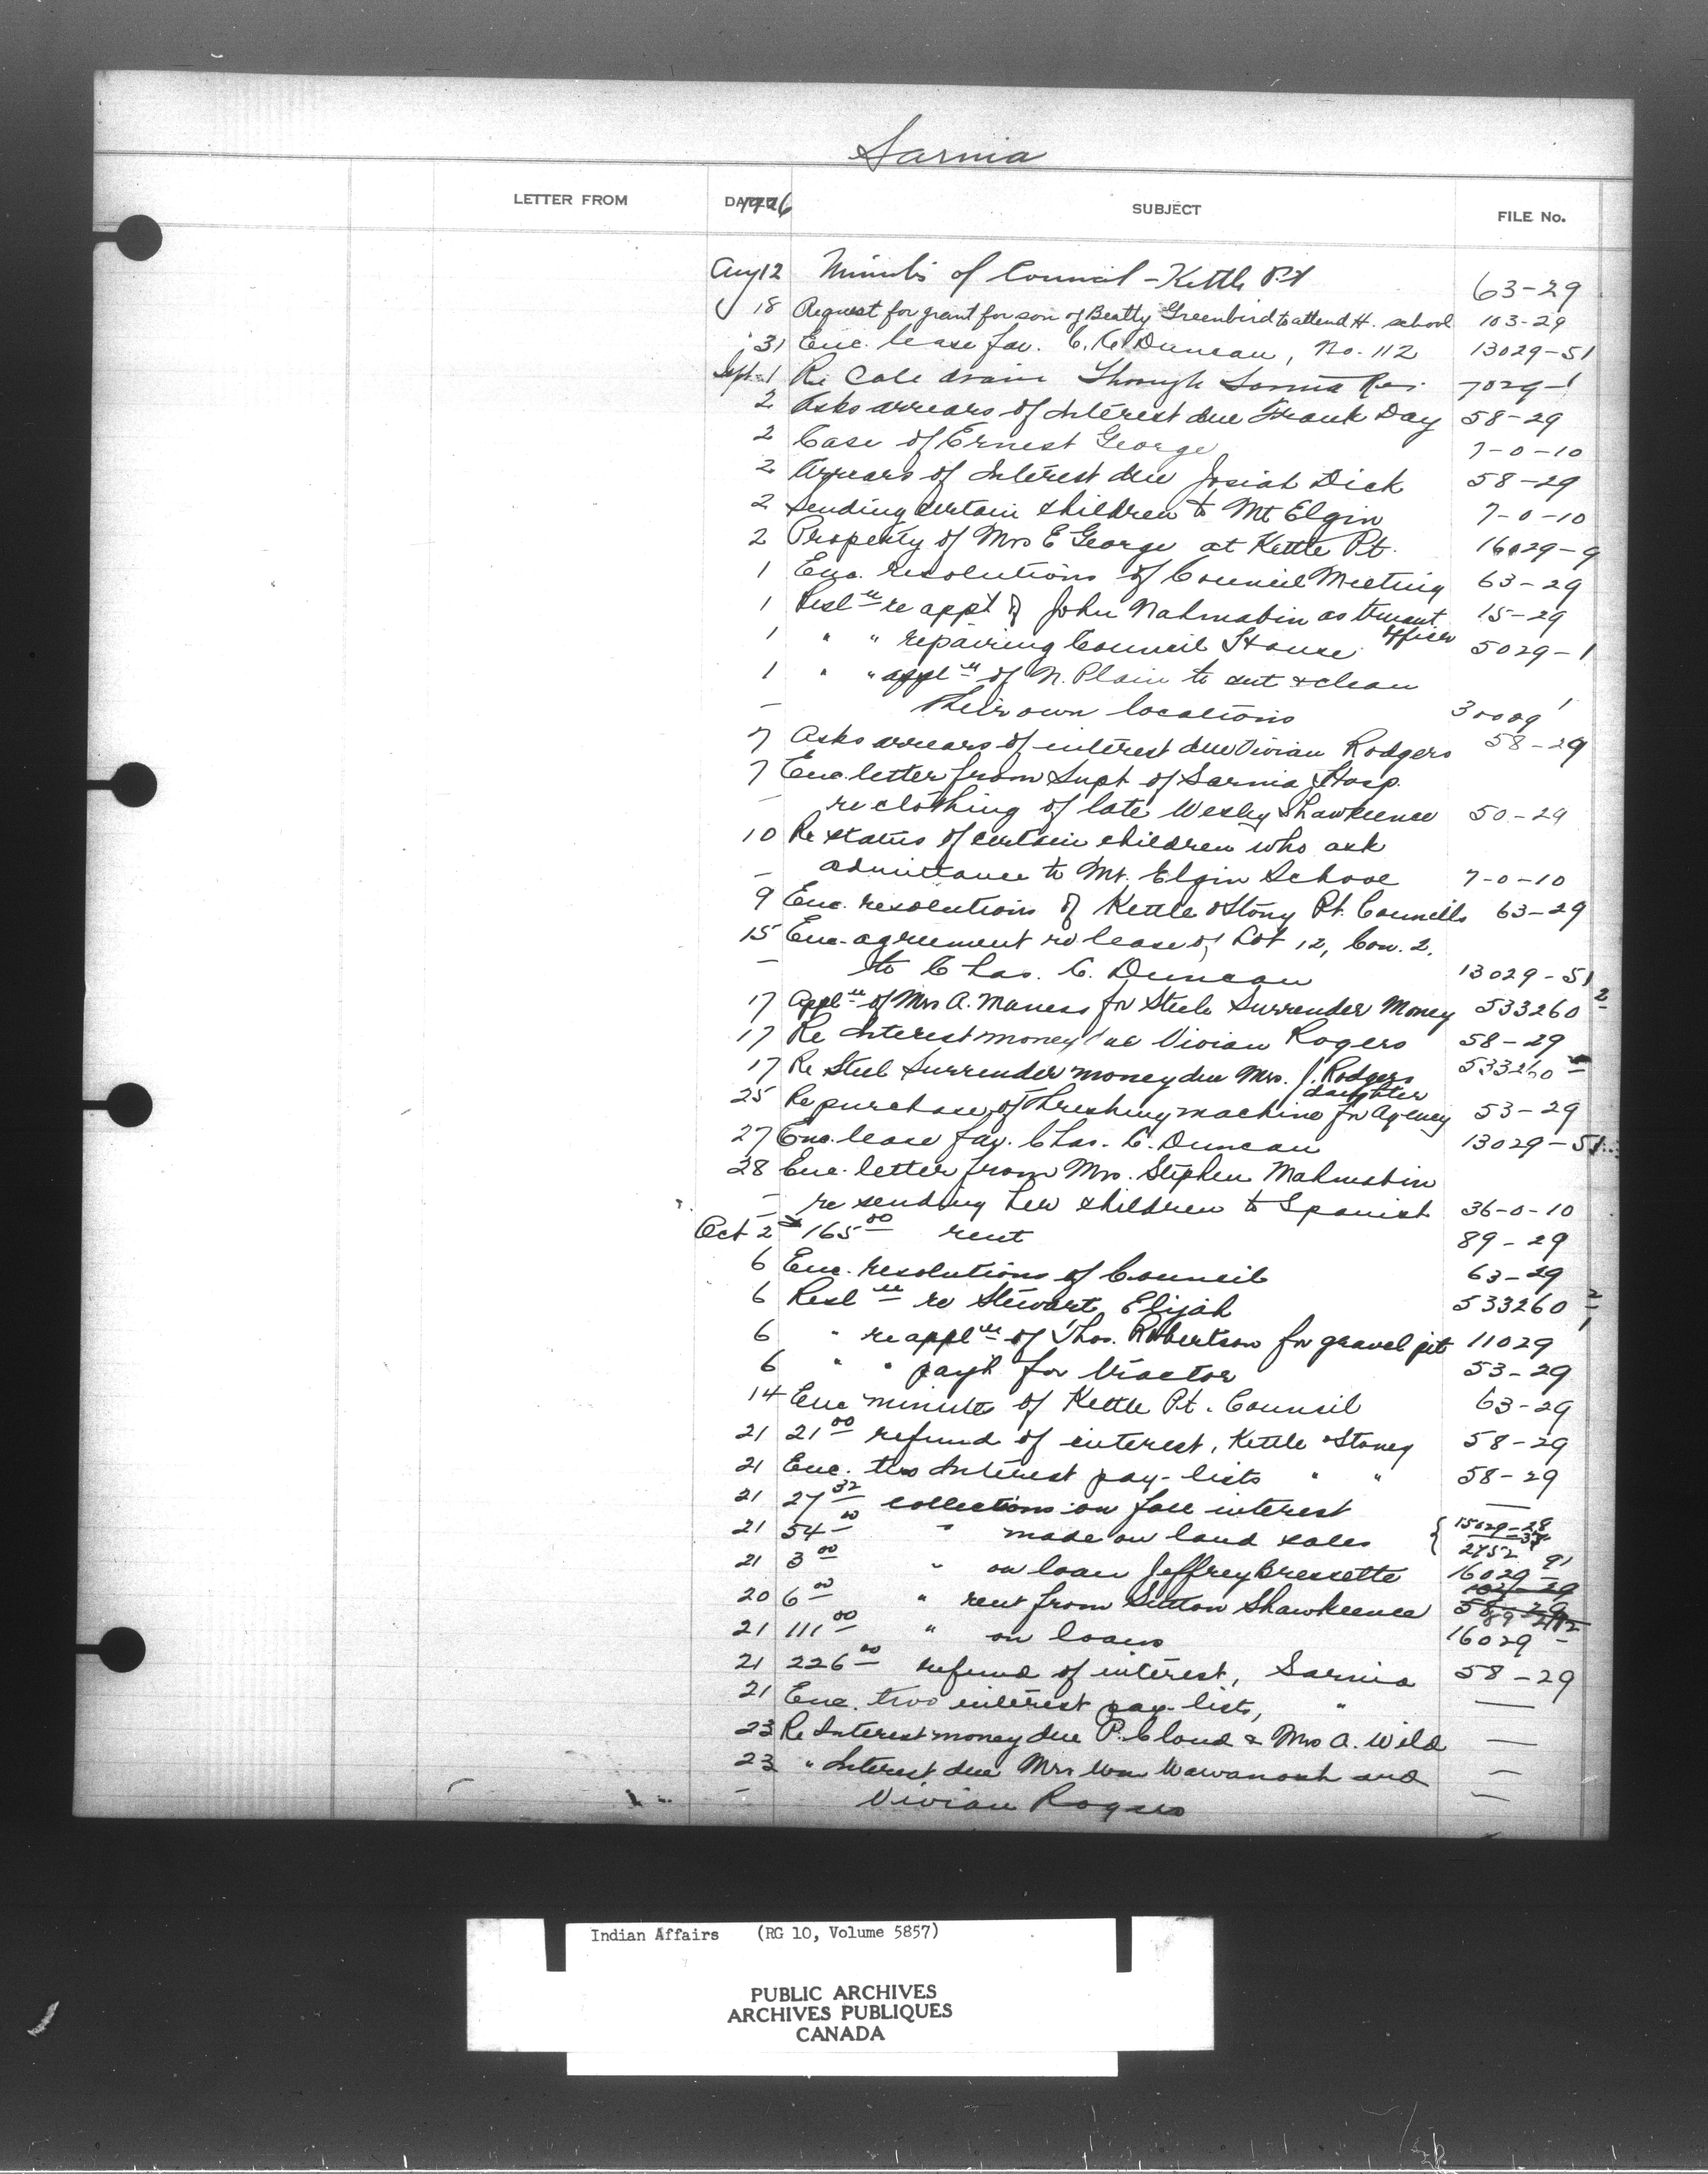 Sarnia
LETTER FROM DATE 1926 SUBJECT FILE No.
Aug 12 Minutes of Council - Kettle Pt 63-29
18 Request for grant for son of Beatty Greenbird to attend H. school 103-29
31 Enc. lease fav. C. C. Duncan, No. 112 13029-51
Sept. 1 Re Cole drain through Sarnia Res. 7029-1
2 Asks arrears of interest due Frank Day 58-29
2 Case of Ernest George 7-0-10
2 Arrears of Interest due Josiah Dick 58-29
2 Sending certain children to Mt Elgin 7-0-10
2 Property of Mrs E George at Kettle Pt. 16029-9
1 Enc. resolutions of Council Meeting 63-29
1 Resl n re appt of John Nahmabin as truant officer 15-29
1 " " repairing Council House 5029-1
1 " " appl n of N. Plain to cut & clean
- their own locations 30009 1
7 Asks arrears of interest due Vivian Rodgers 58-29
7 Enc. letter from Supt of Sarnia Hosp.
- re clothing of late Wesley Shawkence 50-29
10 Re status of certain children who ask
- admittance to Mt. Elgin School 7-0-10
9 Enc. resolutions of Kettle & Stony Pt. Councils 63-29
15 Enc. agreement re lease of Lot 12, Con. 2.
- to Chas. C. Duncan 13029-51
17 Appl n of Mrs A. Maness for Steele Surrender Money 533260 2
17 Re Interest money due Vivian Rogers 58-29
17 Re Steel Surrender money due Mrs. J. Rodgers daughter 533260
25 Re purchase of threshing machine for Agency 53-29
27 Enc. lease fav. Chas. C. Duncan 13029-51
28 Enc. letter from Mrs. Stephen Mahmabin
- re sending her children to Spanish 36-0-10
Oct 2 $165 00 rent 89-29
6 Enc. resolutions of Council 63-29
6 Resl n re Stewart Elijah 533260 2
6 " re appl n of Thos. Robertson for gravel pit 11029 1
6 " " payt for tractor 53-29
14 Enc minutes of Kettle Pt. Council 63-29
21 21 00 refund of interest, Kettle & Stoney 58-29
21 Enc. two Interest pay-lists " " 58-29
21 27 32 collections on fall interest —
21 54 00 " made on land sales { 15029-28
2752
21 3 00 " on loan Jeffrey Bressette 16029-91
20 6 00 " rent from Sutton Shawkence 89-29
21 111 00 " on loans 16029 -
21 226 00 refund of interest, Sarnia 58-29
21 Enc. two interest pay-lists, " —
23 Re Interest money due P. Cloud & Mrs A. Wild —
23 " Interest due Mrs Wm Wawanosh and —
- Vivian Rogers —
Indian Affairs (RG 10, Volume 5857)
PUBLIC ARCHIVES
ARCHIVES PUBLIQUES
CANADA